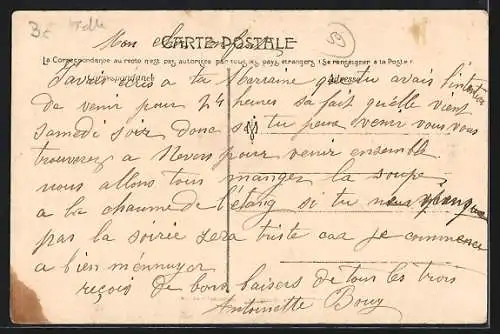 3c
Mon cher
CARTE POSTALE
La Correspondance au recto n'est pas autorisée par tous les pays étrangers (Se renseigner à la Poste)
Correspondance
Adresse
59
a ta Marraine que tu avais l'intention
de venir pour 24 heures sa fait quelle vient
samedi soir donc si tu peux venir vous vous
trouverez a Nevers pour venir ensemble
nous allons tous manger la soupe
a la chaume de l'étang si tu
pas la soirie sera triste car je commence
a bien mennuyer
reçois de bons baisers de tous les trois
Antoinette Bouy